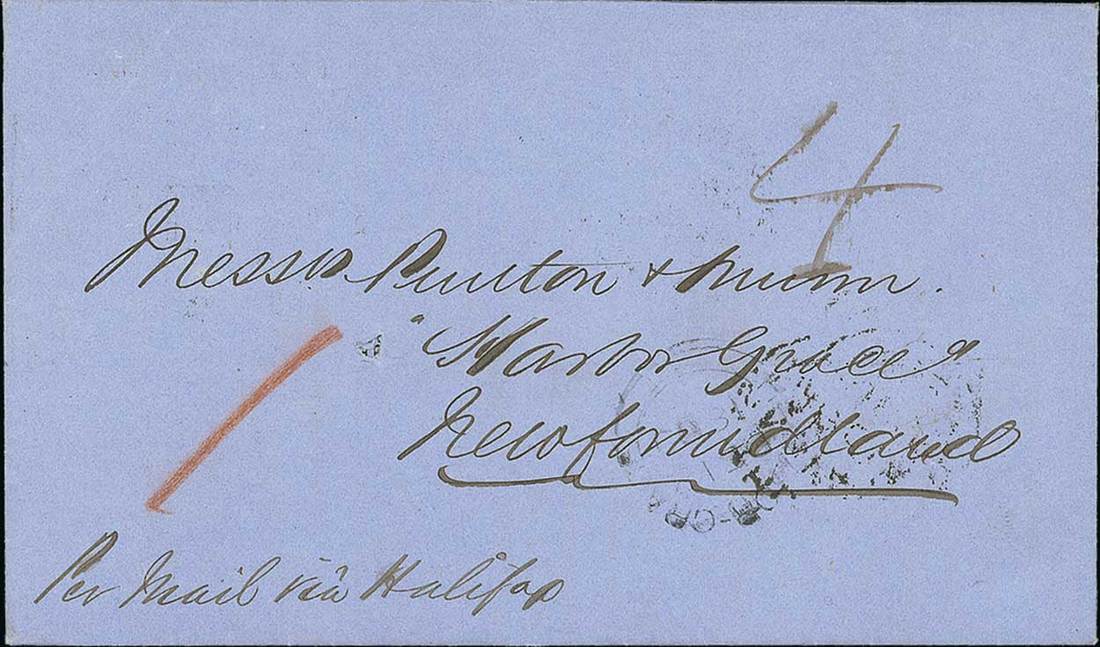 4
Messrs Punton & Munn.
"Harbor Grace"
Newfoundland
Per Mail via Halifax